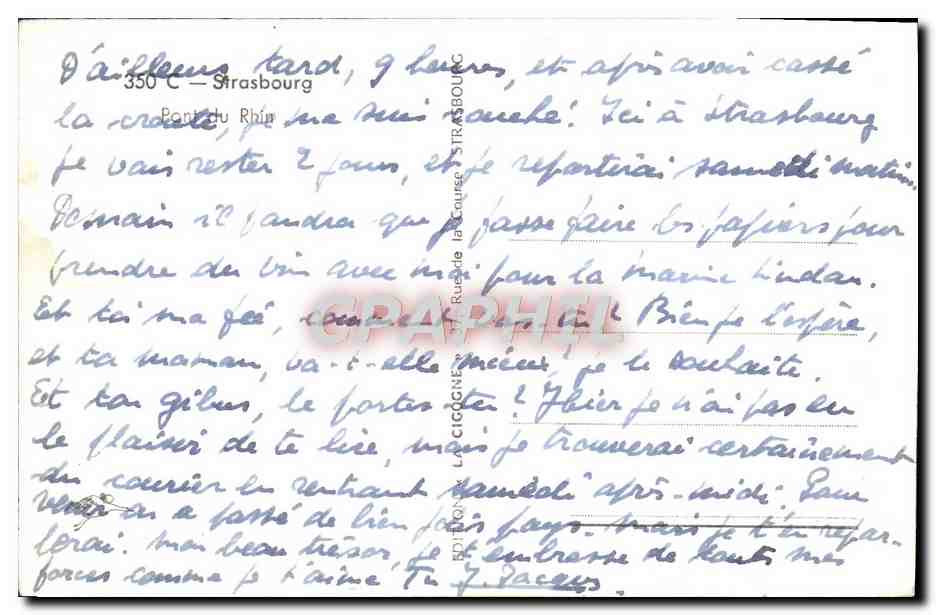 D'ailleurs tard, 9 heures, et après avoir cassé
350 C — Strasbourg
la croute, je me suis couché. Ici à Strasbourg
Pont du Rhin
je vais rester 2 jours, et je repartirai samedi matin.
Demain il faudra que je fasse faire les papiers pour
prendre du vin avec moi pour la marine Lindau.
Et toi ma fée, comment vas-tu? Bien je l'espère,
et ta maman, va-t-elle mieux? je le souhaite.
Et ton gibus, le portes-tu? Hier je n'ai pas eu
le plaisir de te lire, mais je trouverai certainement
du courrier en rentrant samedi après-midi. Pour
venir on a passé de bien jolis pays - mais je t'en repar-
lerai. mon beau trésor, je t'embrasse de toute mes
forces comme je t'aime. Tu J. Jacques.
EDITIONS LA CIGOGNE Rue de la Course STRASBOURG
CRAPHEL